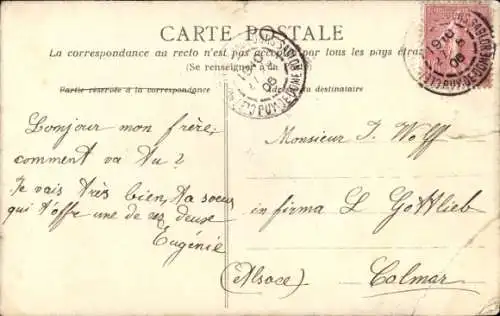 CARTE POSTALE
La correspondance au recto n'est pas acceptée par tous les pays étrangers
(Se renseigner à la
Partie réservée à la correspondance
Adresse du destinataire
SABLON
PUY-DE-DOME
9 10
06
Bonjour mon frère,
comment va tu?
Je vais très bien, ta soeur
qui t'offre une de ses
Eugénie
Monsieur J. Wolff
in firma L Gottlieb
(Alsace) Colmar